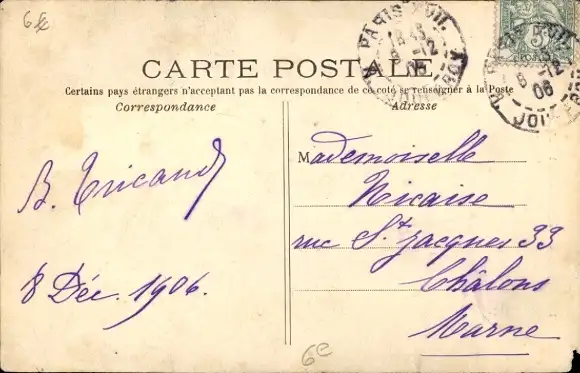 6€
CARTE POSTALE
Certains pays étrangers n'acceptent pas la correspondance de ce côté se renseigner à la Poste
Correspondance
Adresse
B. Tricand
8 Déc. 1906.
Mademoiselle
Nicaise
rue St Jacques 33
Châlons
Marne
PARIS
12
06
5
8 12
06
6€